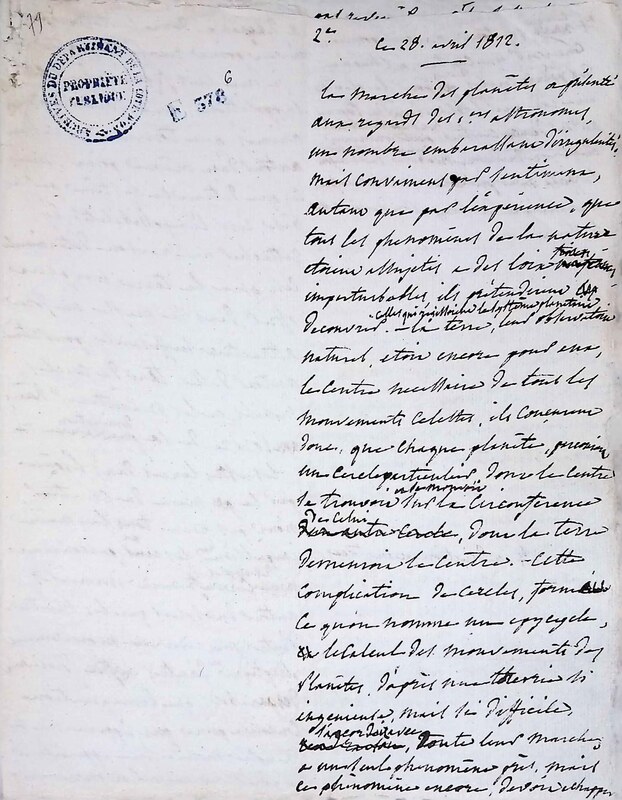 79
ARCHIVES DU DÉPARTEMENT DE LA COTE-D'OR
PROPRIÉTÉ
PUBLIQUE
E 378 6
2e
Ce 28. avril 1812.
la marche des planètes a présenté
aux regards des astronomes,
un nombre embarassant d'irrégularités,
mais convaincus par sentiment,
autant que par l'expérience, que
tous les phénomènes de la nature
étoient assujetis a des loix
imperturbables, ils prétendirent
celles qui maitrisoient le système planétaire
découvrir. - la terre, leur observatoire
naturel, étoit encore pour eux,
le centre necessaire de tous les
mouvements celestes, ils conçurent
donc, que chaque planète, parcouroit
un cercle particulier, dont le centre
se trouvoit sur la circonference
de celui
d'un autre cercle, dont la terre
demeuroit le centre. - Cette
complication de cercles, forme
ce qu'on nomme un epycycle,
le calcul des mouvements des
planètes, d'après une théorie si
ingenieuse, mais si difficile,
s'accordoit avec
toute leur marche,
a un seul phénomène près, mais
ce phénomène encore, devoit échapper